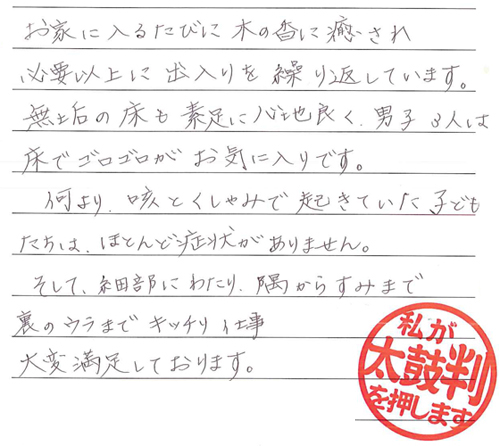 お家に入るたびに木の香に癒され
必要以上に出入りを繰り返しています。
無垢の床も素足に心地良く、男子3人は
床でゴロゴロがお気に入りです。
何より、咳とくしゃみで起きていた子ども
たちは、ほとんど症状がありません。
そして、細部にわたり、隅からすみまで
裏のウラまでキッチリ仕事
大変満足しております。
私が
太鼓判
を押します